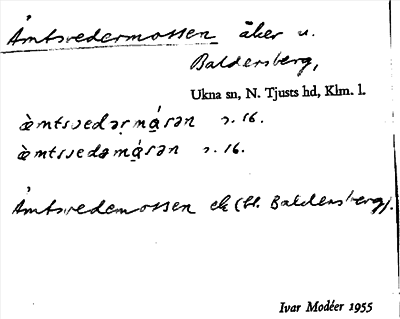 Åmtsvedermossen åker u.
Baldersberg,
Ukna sn, N. Tjusts hd, Klm. l.
æ̀mtsvedərmǻsən s. 16.
æ̀mtsvedəmǻsən s. 16.
Åmtsvedemossen ek (bl. Baldersberg).
Ivar Modéer 1955